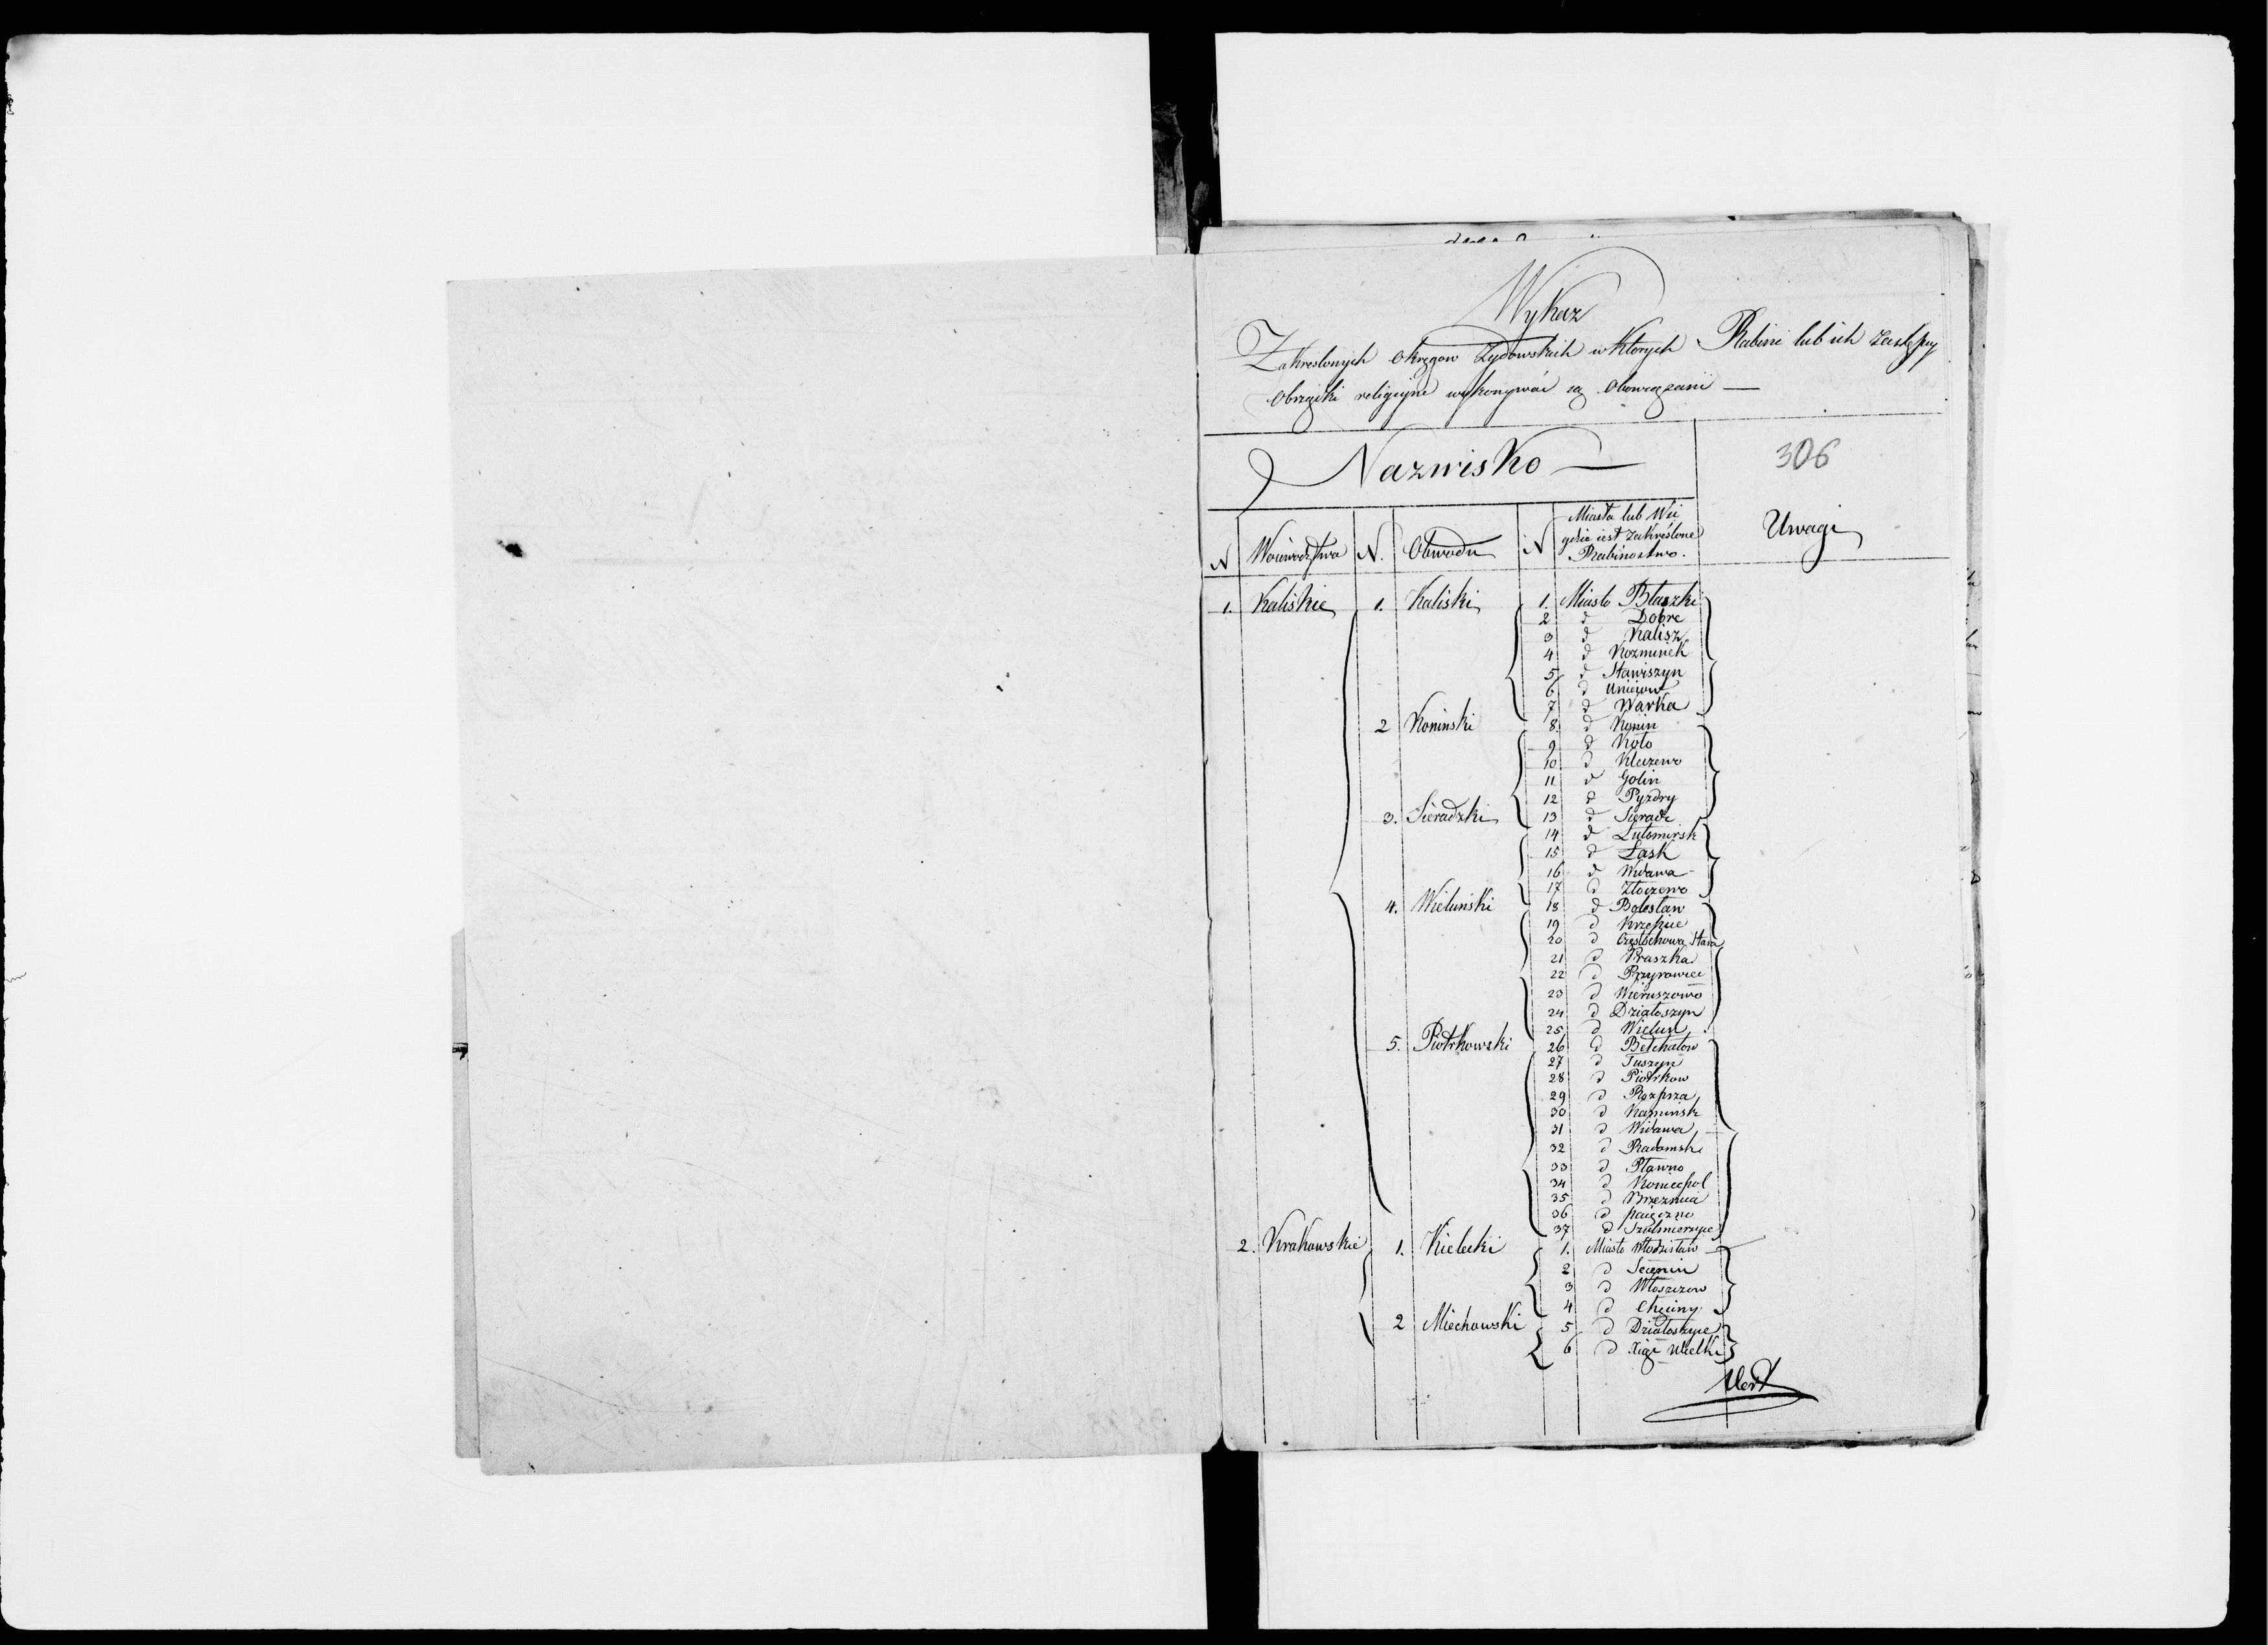 Wykaz
Zakreslonych Okręgow Zydowskich w Ktorych Rabini lub ich Zastępcy
Obrządki religiyne wykonywać są Obowiązani —
Nazwisko —
306
N Woiewodztwa N. Obwodu N Miasta lub Wsi
gdzie iest Zakréslone
Rabinostwo.
Uwagi
1. Kaliskie 1. Kaliski 1. Miasto Błaszki
2 d Dobre
3 d Kalisz
4 d Kozminek
5 d Stawiszyn
6 d Uniejow
7 d Warka
2 Koninski 8. d Konin
9 d Koło
10 d Kleczewo
11 d Golin
12 d Pyzdry
3. Sieradzki 13 d Sieradz
14 d Lutomirsk
15 d Łask
16 d Widawa
17 d Złoczewo
4. Wieluński 18 d Bolesław
19 d Krzepice
20 d Częstochowa Stara
21 d Praszka
22 d Przyrowiec
23 d Wieruszowo
24 d Działoszyn
25 d Wielun
5. Piotrkowski 26 d Bełchatow
27 d Tuszyn
28 d Piotrkow
29 d Rozprza
30 d Kaminsk
31 d Widawa
32 d Radomsk
33 d Pławno
34 d Koniecpol
35 d Brzeznica
36 d Paięczno
37 d Szulmierzyce
2. Krakowskie 1. Kielecki 1. Miasto Włodzisław
2 d Secemin
3 d Włoszczow
4 d Chęciny
2 Miechowski 5 d Działoszyce
6 d Xiąż Wielki